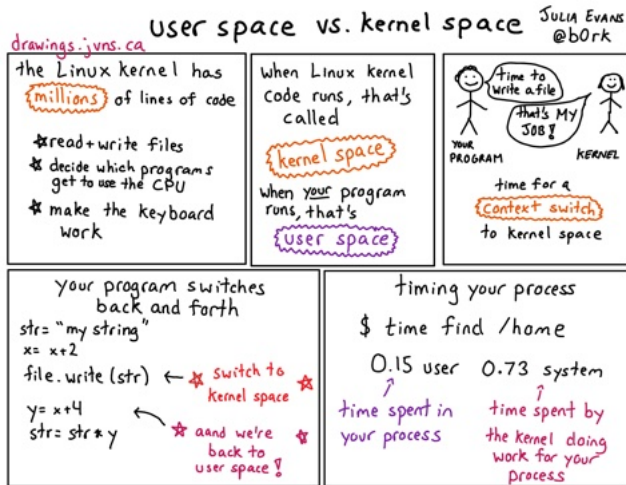 user space vs. kernel space
JULIA EVANS
@b0rk
drawings.jvns.ca
the Linux kernel has
millions of lines of code
★read+write files
★ decide which programs
get to use the CPU
★ make the keyboard
work
when Linux kernel
code runs, that's
called
kernel space
when your program
runs, that's
user space
time to
write a file
that's MY
JOB!
YOUR
PROGRAM
KERNEL
time for a
context switch
to kernel space
your program switches
back and forth
str= "my string"
x= x+2
file.write (str) ← ★ switch to ★
kernel space
y= x+4
str= str * y
★ aand we're ★
back to
user space!
timing your process
$ time find /home
0.15 user 0.73 system
time spent in
your process
time spent by
the kernel doing
work for your
process